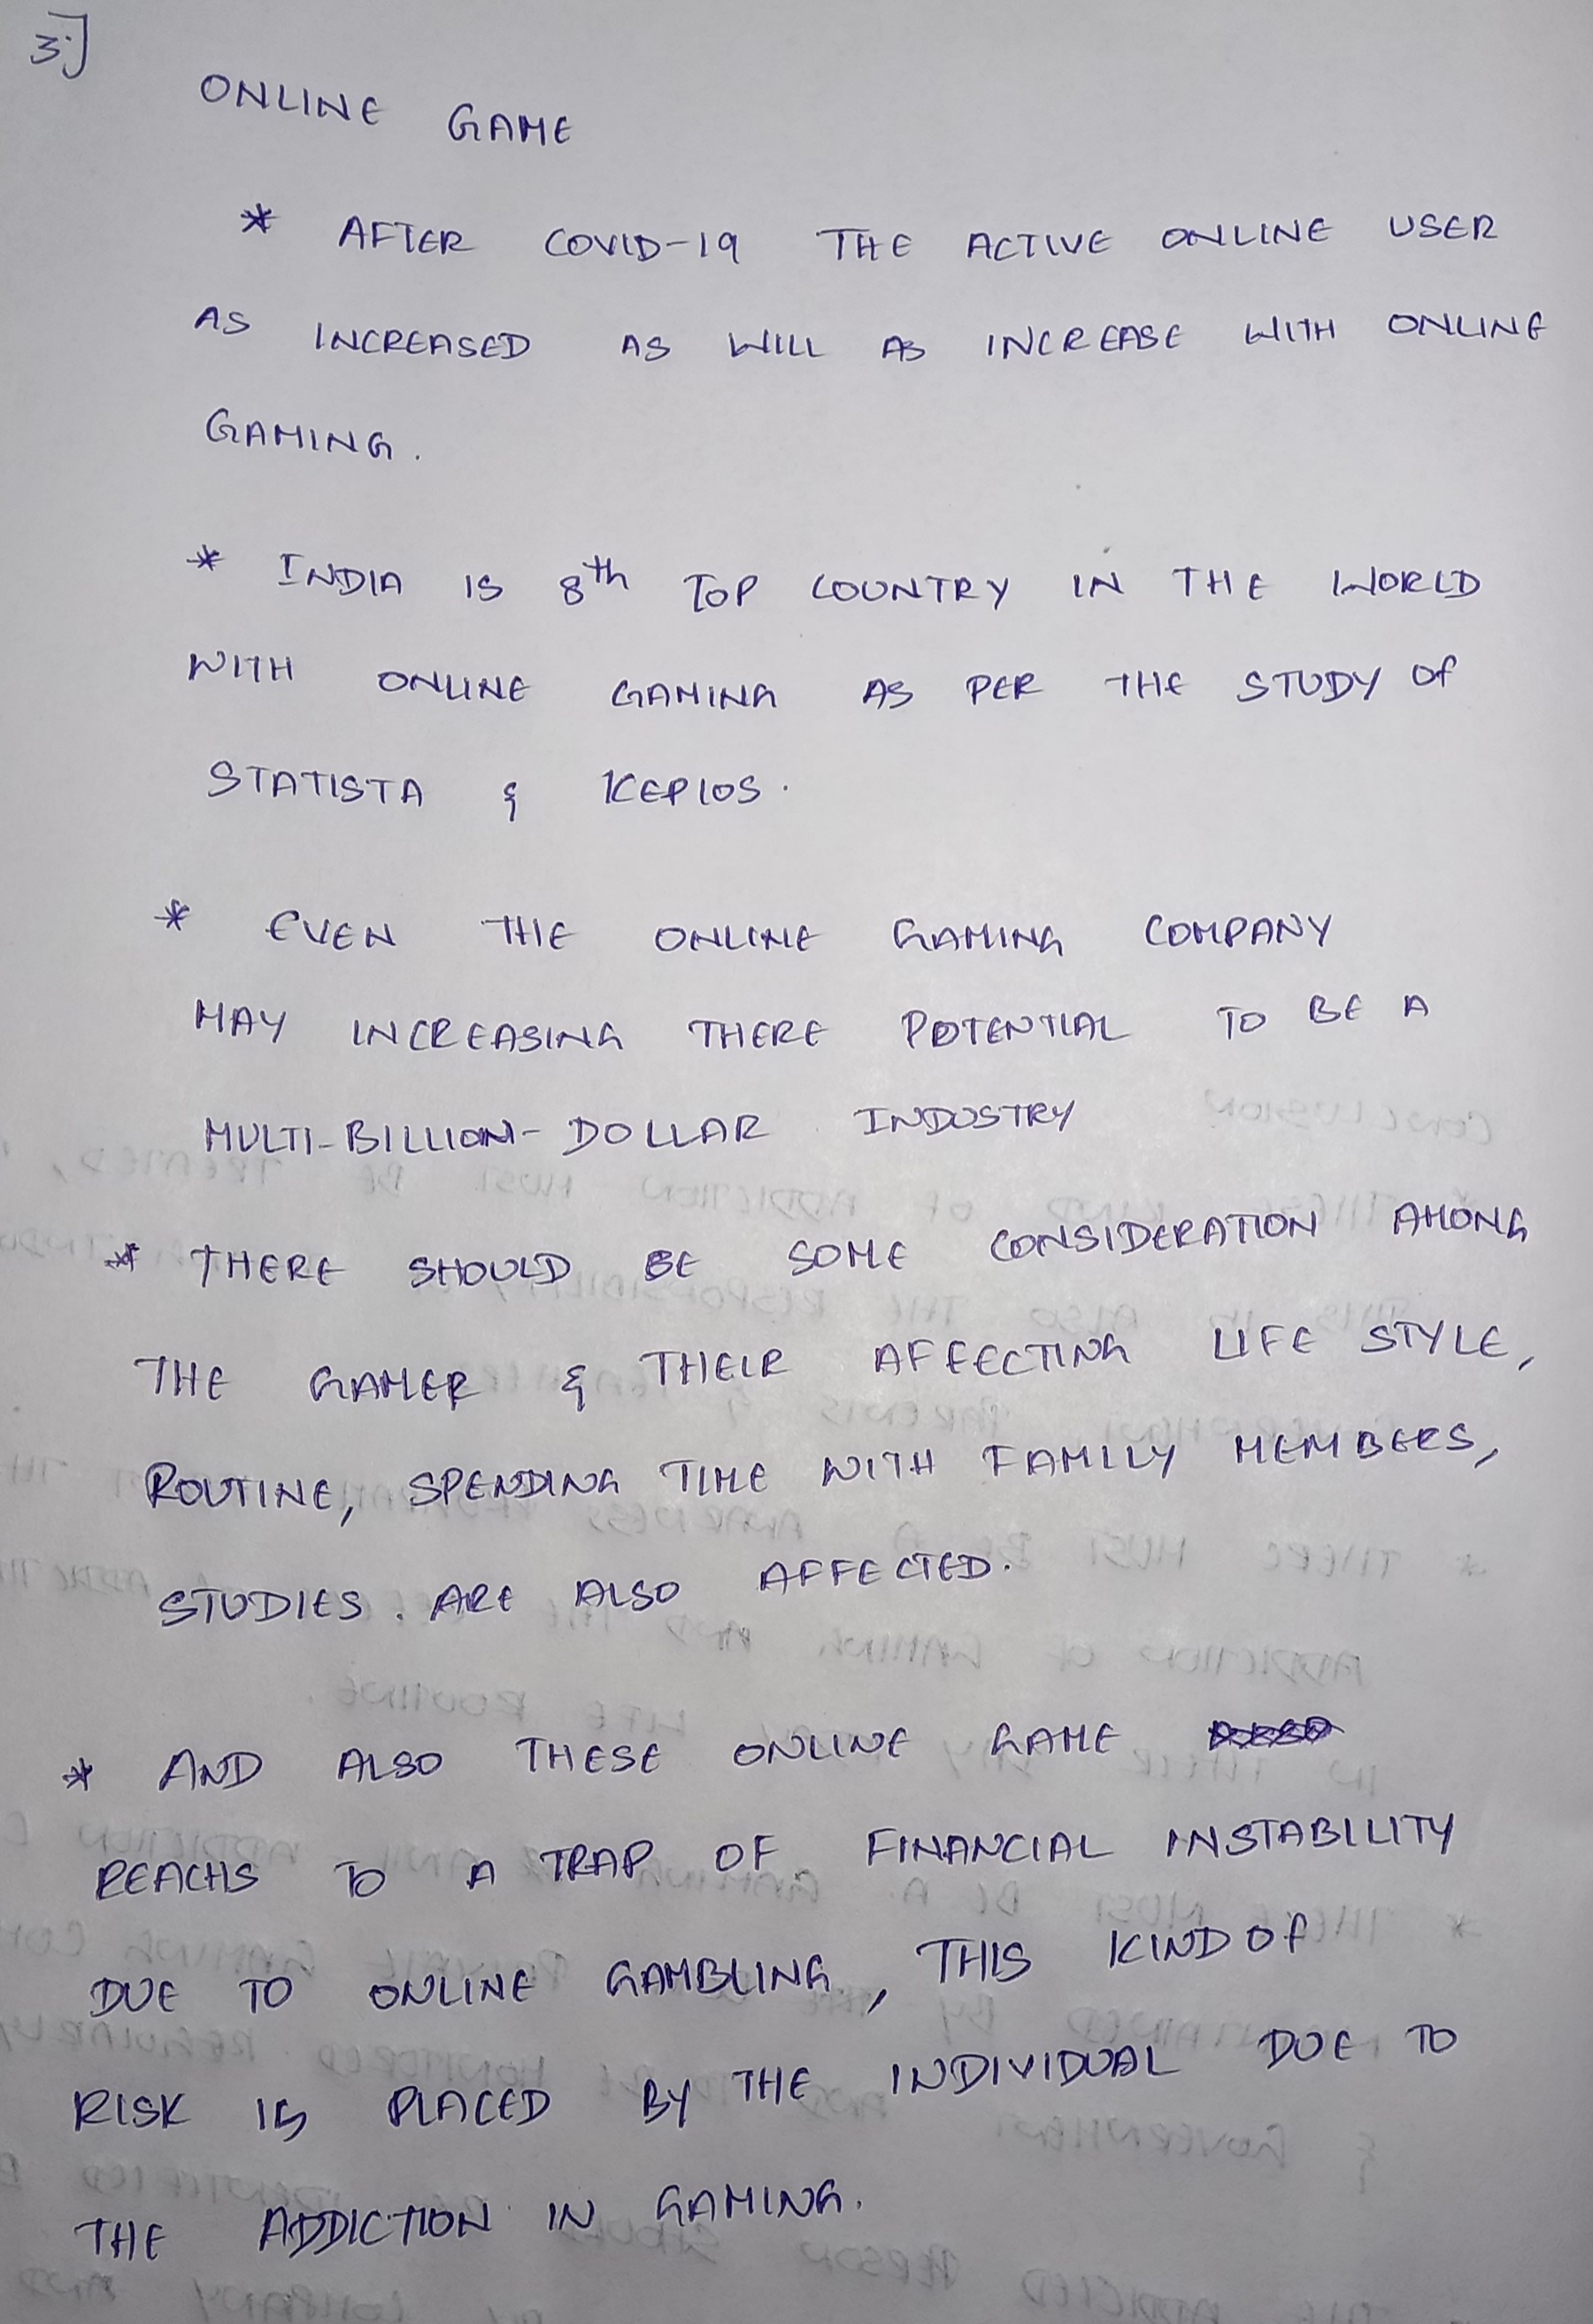 3:]
ONLINE GAME
* AFTER COVID-19 THE ACTIVE ONLINE USER
AS INCREASED AS WILL AS INCREASE WITH ONLINE
GAMING.
* INDIA IS 8th TOP COUNTRY IN THE WORLD
WITH ONLINE GAMING AS PER THE STUDY Of
STATISTA & KEPIOS.
* EVEN THE ONLINE GAMING COMPANY
MAY INCREASING THERE POTENTIAL TO BE A
MULTI-BILLION-DOLLAR INDUSTRY
* THERE SHOULD BE SOME CONSIDERATION AMONG
THE GAMER & THEIR AFFECTING LIFE STYLE,
ROUTINE, SPENDING TIME WITH FAMILY MEMBERS,
STUDIES. ARE ALSO AFFECTED.
* AND ALSO THESE ONLINE GAME
REACHS TO A TRAP OF FINANCIAL INSTABILITY
DUE TO ONLINE GAMBLING, THIS KIND Of
RISK IS PLACED BY THE INDIVIDUAL DUE TO
THE ADDICTION IN GAMING.